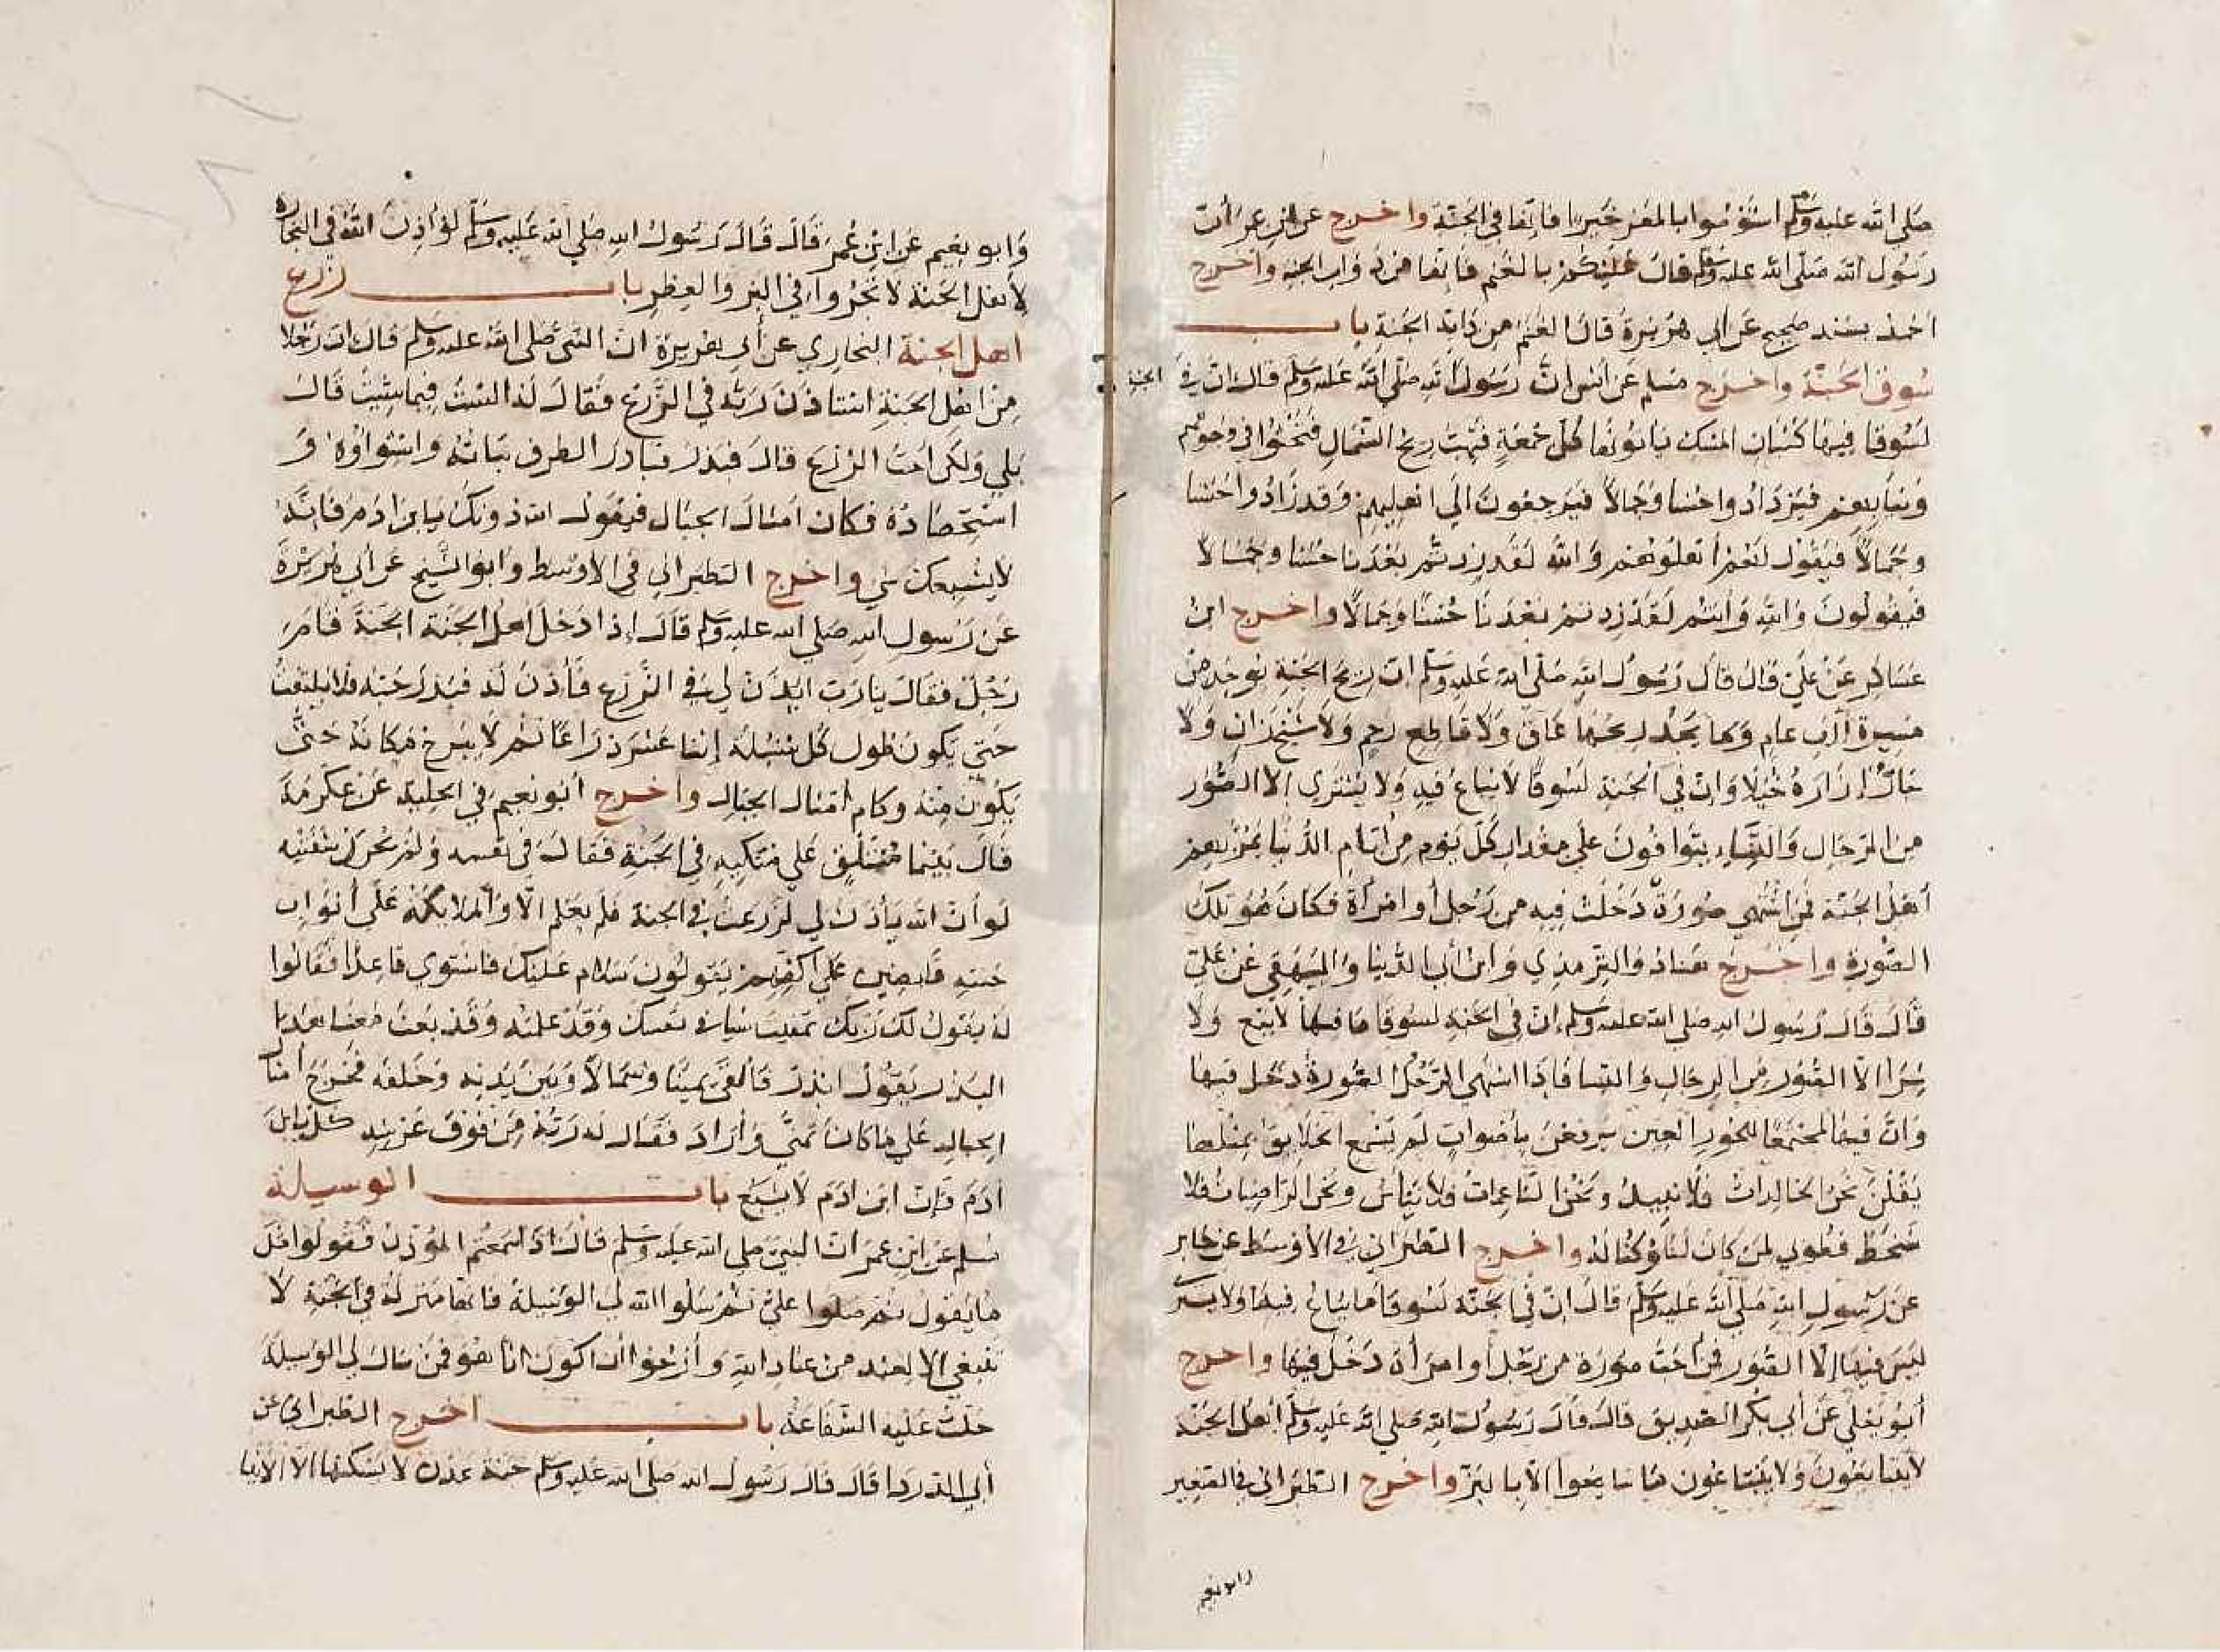 صلى الله عليه وسلم استوصوا بالمعز خيرا فانها في الجنة واخرج عن ابن عمر ان
رسول الله صلى الله عليه وسلم قال عليكم بالغنم فانها من دواب الجنة واخرج
احمد بسند صحيح عن ابي هريرة قال الغنم من دابة الجنة باب
سوق الجنة واخرج مسلم عن انس ان رسول الله صلى الله عليه وسلم قال ان في الجنة
لسوقا فيها كثبان المسك ياتونها كل جمعة فتهب ريح الشمال فتحثوا في وجوههم
وثيابهم فيزدادوا حسنا وجمالا فيرجعون الي اهليهم وقد زادوا حسنا
وجمالا فيقول لهم اهلوهم والله لقد زدتم بعدنا حسنا وجمالا
فيقولون والله وانتم لقد زدتم بعدنا حسنا وجمالا واخرج ابن
عساكر عن علي قال قال رسول الله صلى الله عليه وسلم ان ريح الجنة يوجد من
مسيرة الف عام وما يجد ريحها عاق ولا قاطع رحم ولا شيخ زان ولا
جار ازاره خيلا وان في الجنة لسوقا لا يباع فيه ولا يشتري الا الصور
من الرجال والنساء يتوافون علي مقدار كل يوم من ايام الدنيا يمر بهم
اهل الجنة فمن اشتهي صورة دخلت فيه من رجل او امراة فكان هو تلك
الصورة واخرج هناد والترمذي وابن ابي الدنيا والبيهقي عن علي
قال قال رسول الله صلى الله عليه وسلم ان في الجنة لسوقا ما فيها لا بيع ولا
شرا الا الصور من الرجال والنسا فاذا اشتهي الرجل الصورة دخل فيها
وان فيها لمجتمعا للحور العين يرفعن باصوات لم تسمع الخلايق بمثلها
يقلن نحن الخالدات فلا نبيد ونحن الناعمات فلا نباس ونحن الراضيات فلا
نسخط فطوبي لمن كان لنا وكنا له واخرج الطبراني في الاوسط عن جابر
عن رسول الله صلى الله عليه وسلم قال ان في الجنة لسوقا ما يباع فيها ولا يشتر
ليس فيها الا الصور فمن احب صورة من رجل او امراة دخل فيها واخرج
ابو يعلي عن ابي بكر الصديق قال قال رسول الله صلى الله عليه وسلم اهل الجنة
لا يتبايعون ولو يتبايعون ما تبايعوا الا بالبز واخرج الطبراني في الصغير
وابو نعيم
وابو نعيم عن ابن عمر قال قال رسول الله صلى الله عليه وسلم لو اذن الله في التجارة
لاهل الجنة لاتجروا في البز والعطر باب زرع
اهل الجنة البخاري عن ابي هريرة ان النبي صلى الله عليه وسلم قال ان رجلا
من اهل الجنة استاذن ربه في الزرع فقال له الست فيما شيت قال
بلي ولكن احب الزرع قال فبذر فبادر الطرف نباته واستواؤه و
استحصاده فكان امثال الجبال فيقول الله دونك يا ابن ادم فانه
لا يشبعك شي واخرج الطبراني في الاوسط وابو الشيخ عن ابي هريرة
عن رسول الله صلى الله عليه وسلم قال اذا دخل اهل الجنة الجنة قام
رجل فقال يا رب ايذن لي في الزرع فاذن له فبذر حبه فلا يلتفت
حتي يكون طول كل سنبلة اثنا عشر ذراعا ثم لا يبرح مكانه حتي
يكون منه ركام امثال الجبال واخرج ابو نعيم في الحلية عن عكرمة
قال بينما مستلق علي متكيه في الجنة فقال في نفسه ولم يحرك شفتيه
لو ان الله ياذن لي لزرعت في الجنة فلم يعلم الا والملايكة علي ابواب
جنته قابضين علي اكفهم يقولون سلام عليك فاستوي قاعدا فقالوا
له يقول لك ربك تمنيت شيا في نفسك وقد علمته وقد بعث معنا هذا
البذر يقول ابذر فالقي يمينا وشمالا وبين يديه وخلفه فخرج امثال
الجبال علي ما كان تمني واراد فقال له ربه من فوق عرشه كل يا ابن
ادم فان ابن ادم لا يشبع باب الوسيلة
مسلم عن ابن عمر ان النبي صلى الله عليه وسلم قال اذا سمعتم المؤذن فقولوا مثل
ما يقول ثم صلوا علي ثم سلوا الله لي الوسيلة فانها منزلة في الجنة لا
تنبغي الا لعبد من عباد الله وارجوا ان اكون انا هو فمن سال لي الوسيلة
حلت عليه الشفاعة باب اخرج الطبراني عن
ابي الدردا قال قال رسول الله صلى الله عليه وسلم جنة عدن لا يسكنها الا الانبيا